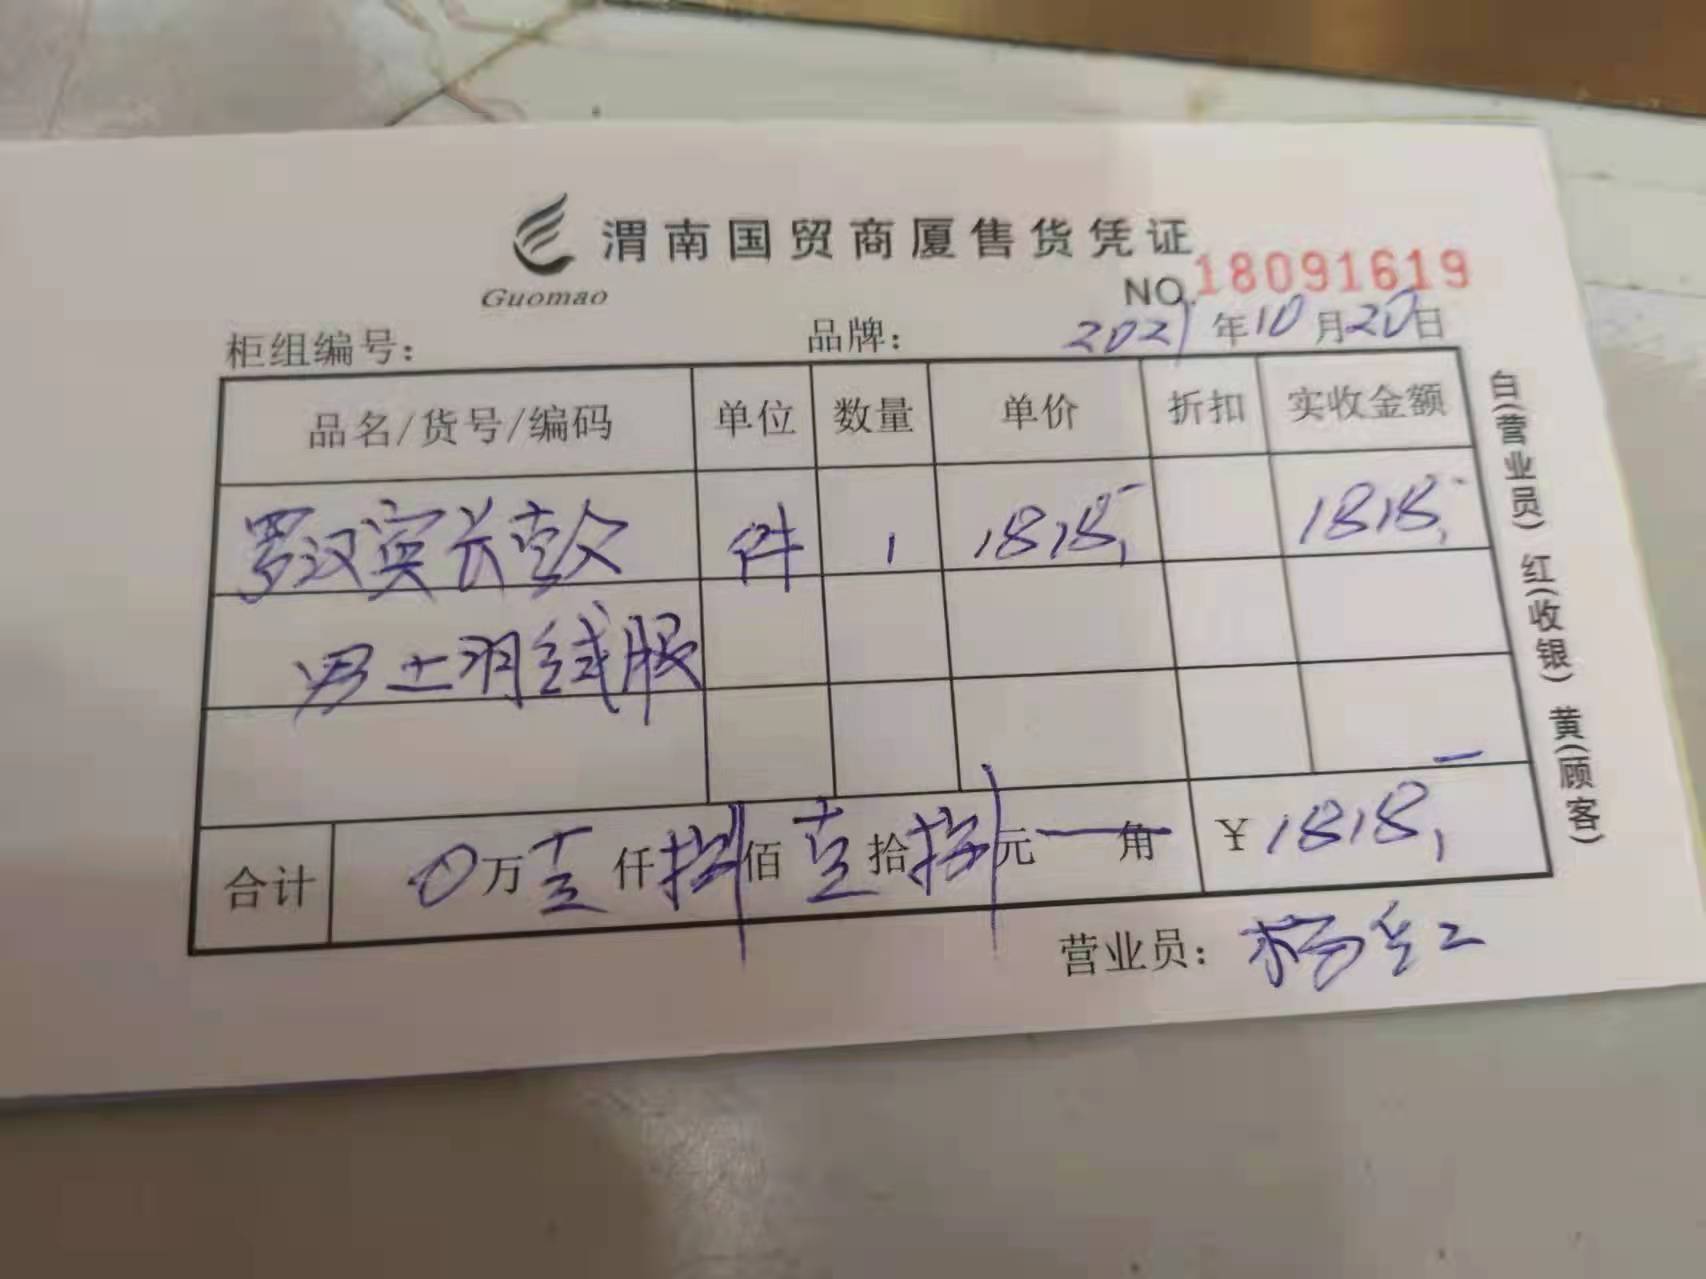 渭南国贸商厦售货凭证
Guomao
NO.18091619
柜组编号： 品牌： 2021年10月20日
品名/货号/编码 单位 数量 单价 折扣 实收金额
罗汉宾长款 件 1 1818,- 1818,-
男士羽绒服
合计 0万壹仟捌佰壹拾捌元一角 ￥1818,-
营业员：杨
白(营业员) 红(收银) 黄(顾客)